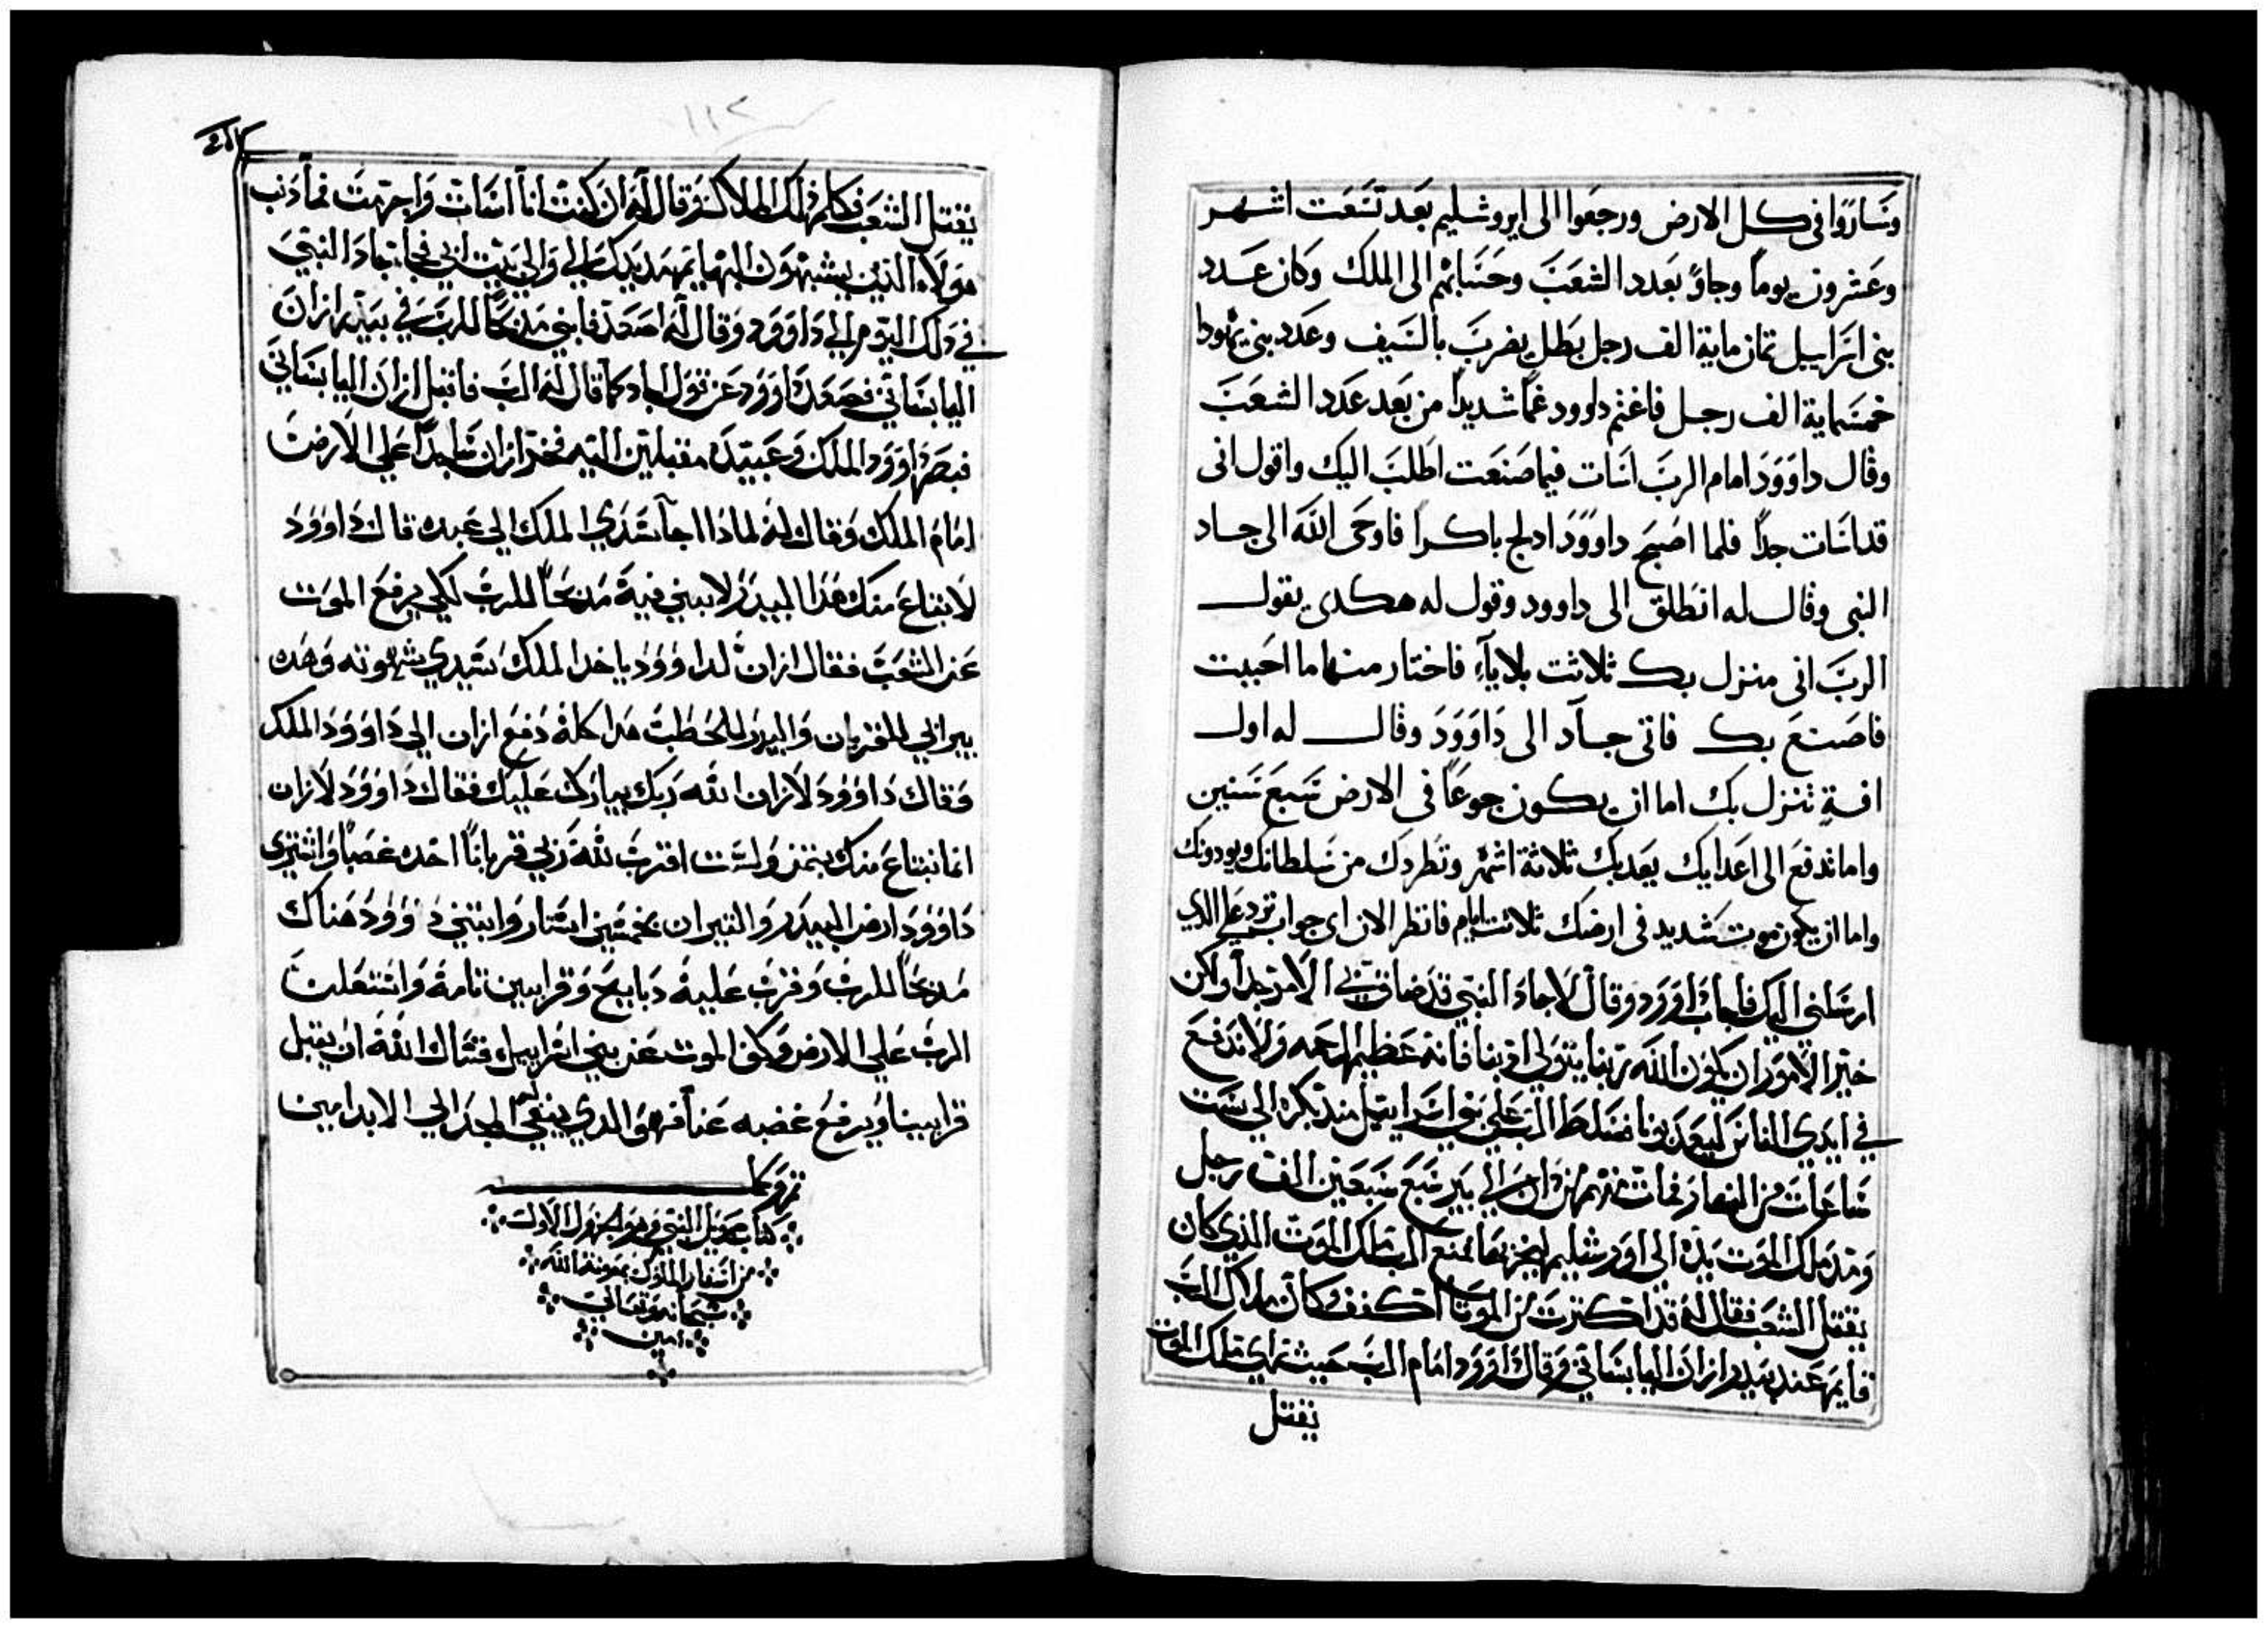 وساروا في كل الارض ورجعوا الى ايروشليم بعد تسعت اشهر
وعشرون يوماً وجاوً بعدد الشعب وحسابهم الى الملك وكان عدد
بنى اسراييل ثمان ماية الف رجل بطل يضرب بالسيف وعدد بنى يهودا
خمسماية الف رجل فاغتم داوود غماً شديداً من بعد عدد الشعب
وقال داوود امام الرب اسات فيما صنعت اطلب اليك واقول انى
قد اسات جداً فلما اصبح داوود ادلج باكرا فاوحى الله الى جاد
النبى وقال له انطلق الى داوود وقول له هكدى يقول
الرب انى منزل بك ثلاثت بلاياء فاختار منها ما احببت
فاصنع بك فاتى جاد الى داوود وقال له اول
افة تنزل بك اما ان يكون جوعاً فى الارض سبع سنين
واما تدفع الى اعدايك يعدبك ثلاثة اشهر وتطردك من سلطانك ويودونك
واما ان يكون موت شديد فى ارضك ثلاثت ايام فانظر الان اى جواب ترد على الدي
ارسلني اليك فاجاب داوود وقال لاجاد النبي قد ضاق بي الامر جداً ولكن
خير الامور ان يكون الله ربنا يتولى ادبنا فانه عظيم الرحمه ولا ندفع
في ايدي الناس ليعدبونا فسلط الرب على بني اسراييل من بكره الى ست
ساعات من النهار فمات منهم من دان الي بير سبع سبعين الف رجل
ومد ملك الموت يده الي اورشليم ليخربها فمنع الرب ملك الموت الذي كان
يقتل الشعب فقال له قد اكترت من الموتا اكفف وكان ملاك الرب
قايم عند بيدر ازان اليابساني وقال داوود امام الرب حيث راي ملك الموت
يقتل
١١٢
يقتل الشعب فكلم ذلك الملاك وقال له ان كنت انا اسات واجرمت فما دنب
هولاء الذين يشبهون البهايم مد يدك علي والي بيت ابي فجا جاد النبي
في ذلك اليوم الي داوود وقال له اصعد فابني مدبحاً للرب في بيدر ازان
اليابساني فصعد داوود عن قول جاد كما قال له الرب فاقبل ازان اليابساني
فبصر داوود الملك وعبيده مقبلين اليه فخر ازان ساجداً على الارض
امام الملك وقال له لمادا جا سيدي الملك الي عبده قال داوود
لابتاع منك هدا البيدر لابني فيه مدبحاً للرب لكي يرفع الموت
عن الشعب فقال ازان لداوود ياخد الملك سيدي شهوته وهده
بيراني للقربان والبيدر للحطب هدا كله دفع ازان الي داوود الملك
وقال داوود لازان الله ربك يبارك عليك فقال داوود لازان
انما نبتاع منك بتمن ولست اقرب لله ربي قرباناً اخده غصباً واشترى
داوود ارض البيدر والتيران بخمسين استار وابتنى داوود هناك
مدبحاً للرب وقرب عليه دبايح وقرابين تامة واشتعلت
الرب على الارض وكف الموت عن بني اسراييل فنسال الله ان يقبل
قرابيننا ويرفع غضبه عنا فهو الدي ينبغي له المجد الي الابد امين
تم وكمل
كتاب صمويل النبي وهو الجزو الاول
من اسفار الملوك بمعونة الله
سبحانه وتعالى
امين